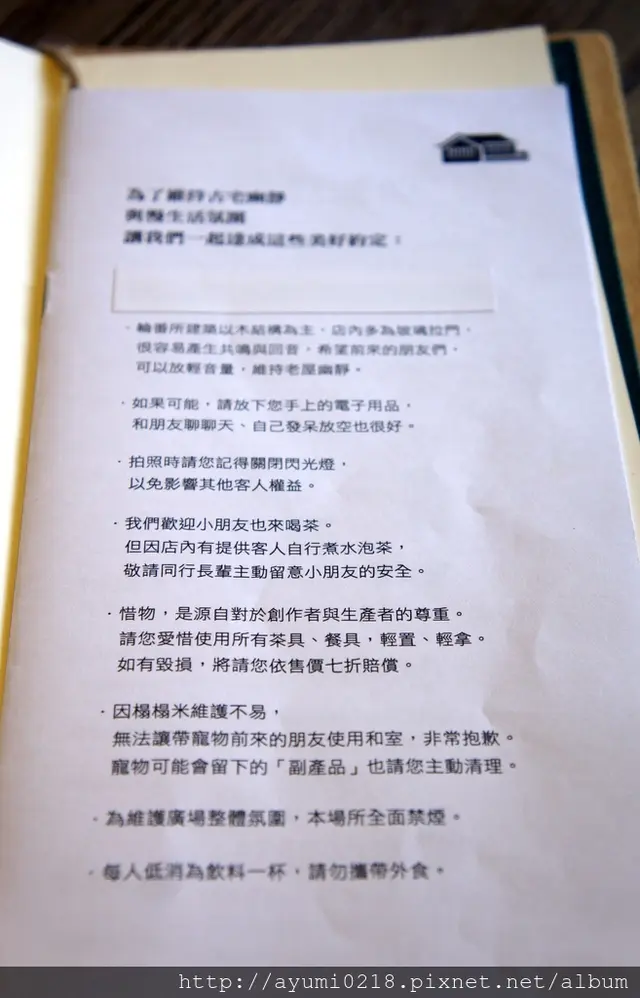 為了維持古宅幽靜
與慢生活氛圍
讓我們一起達成這些美好約定：
·輪番所建築以木結構為主，店內多為玻璃拉門，
很容易產生共鳴與回音，希望前來的朋友們，
可以放輕音量，維持老屋幽靜。
·如果可能，請放下您手上的電子用品，
和朋友聊聊天、自己發呆放空也很好。
·拍照時請您記得關閉閃光燈，
以免影響其他客人權益。
·我們歡迎小朋友也來喝茶。
但因店內有提供客人自行煮水泡茶，
敬請同行長輩主動留意小朋友的安全。
·惜物，是源自對於創作者與生產者的尊重。
請您愛惜使用所有茶具、餐具，輕置、輕拿。
如有毀損，將請您依售價七折賠償。
·因榻榻米維護不易，
無法讓帶寵物前來的朋友使用和室，非常抱歉。
寵物可能會留下的「副產品」也請您主動清理。
·為維護廣場整體氛圍，本場所全面禁煙。
·每人低消為飲料一杯，請勿攜帶外食。
http://ayumi0218.pixnet.net/album